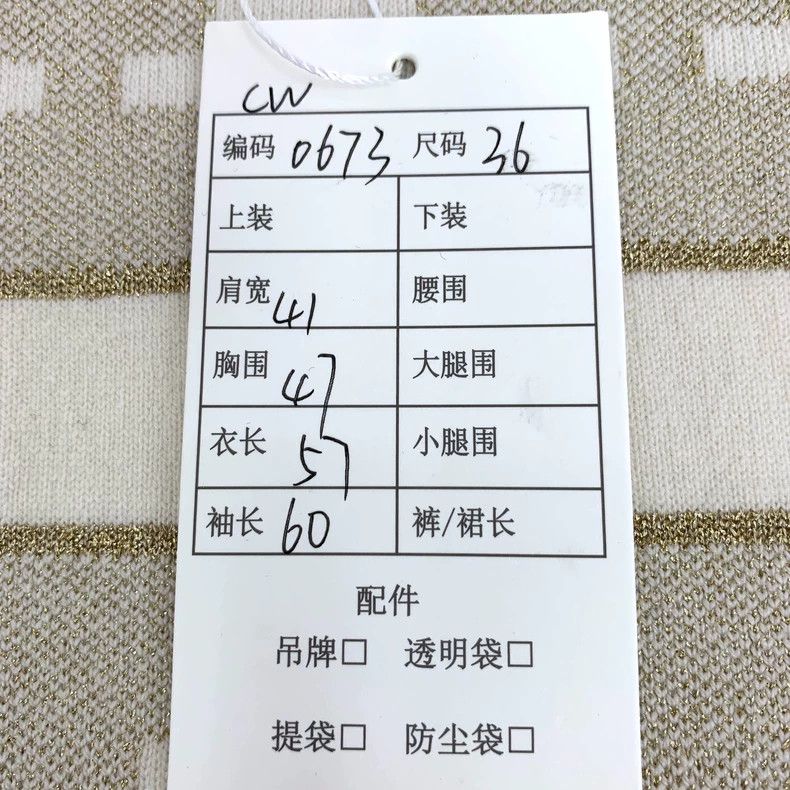 CW
编码 0673 尺码 36
上装 下装
肩宽 41 腰围
胸围 47 大腿围
衣长 57 小腿围
袖长 60 裤/裙长
配件
吊牌□ 透明袋□
提袋□ 防尘袋□